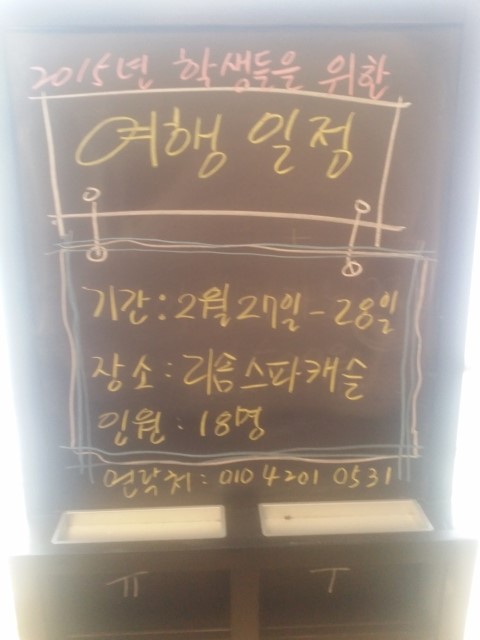 2015년 학생들을 위한
여행 일정
기간 : 2월 27일 - 28일
장소 : 리솜스파캐슬
인원 : 18명
연락처 : 010 4201 0531
ㅠ ㅜ